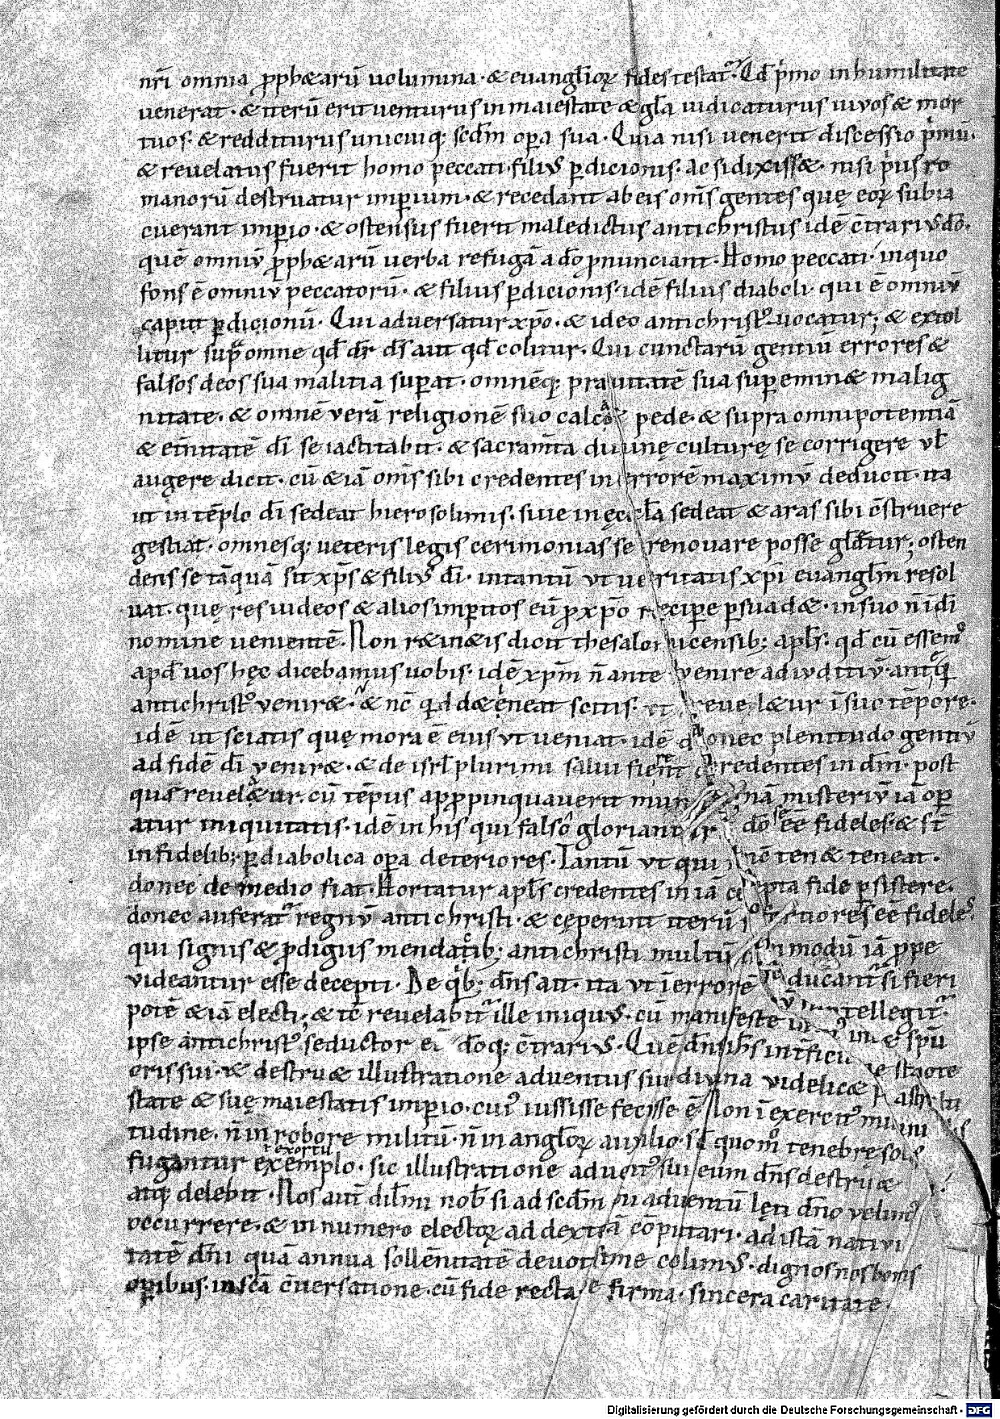 nrī omnia ꝓph&arū uolumina · & euangl̄ioꝝ fides testat᷑ · Qđ p̄mo in humilitate
venerat · & iterū erit venturus in maiestate & gl̄a iudicaturus uiuos & mor
tuos · & redditurus unicuiq; scdm̄ oꝑa sua · Quia nisi venerit discessio p̄mū ·
& revelatus fuerit homo peccati · filiꝰ ꝑdicionis · ac si dixiss& · nisi p̄us ro
manorū destruatur imꝑium · & recedant ab eis om̄s gentes quę eoꝝ subia
cuerant imꝑio · & ostensus fuerit maledictus antichristus idē c̄trariꝰ dō ·
quē omniū ꝓph&arū uerba refugā a dō ꝓnunciant · Homo peccati · inquo
fons ē omniū peccatorū · & filius ꝑdicionis · idē filius diaboli · qui ē omniū
caput ꝑdicionū · Qui aduersatur xp̄o · & ideo antichristꝰ uocatur ; & extol
litur sup̄ omne qđ dr̄ ds̄ aut qđ colitur · Qui cunctarū gentiū errores &
falsos deos sua malitia suꝑat · omnēq; prauitatē sua suꝑemin& malig
nitate · & omnē verā religionē suo calcat pede · & supra omnipotentiā
& et̄nitatē dī se iactitabit · & sacram̄ta diuinę culturę se corrigere ul̄
augere dicit · cū & iā om̄s sibi credentes in errorē maximū deducit · ita
ut in tēplo dī sedeat hierosolimis · siue in ęccl̄a sedeat & aras sibi c̄struere
gestiat · omnesq; ueteris legis cerimonias se renouare posse gl̄atur ; osten
dens se tāquā sit xp̄s & filiꝰ dī · intantū ut ueritatis xp̄i euangl̄m resol
uat · quę res iudeos & alios imꝑitos eū ꝓ xp̄o reciꝑe ꝑsuad& · in suo n̄ in dī
nomine uenientē · Non r&in&is dicit thesalonicensib; apl̄s · qđ cū essem
apđ uos hęc dicebamus uobis · idē xp̄m n̄ ante venire ad iuditiū · antq̄
antichristꝰ venir& · & nc̄ qđ d&ineat scitis · ut reuel&ur ī suo tēpore ·
idē ut sciatis quę mora ē eius ut ueniat · idē donec plenitudo gentiū
ad fidē dī venir& · & de isrl̄ plurimi salui fierent credentes in dm̄ · post
qua reuel&ur · cū tēpus apꝓpinquauerit · misteriū iā oꝑ
atur iniquitatis · idē in his qui falso gloriant dō eē fideles · & st̄
infidelib; ꝑ diabolica oꝑa deteriores · Tantū ut qui nc̄ ten& teneat ·
donec de medio fiat · Hortatur apl̄s credentes in iā cepta fide ꝑsistere ·
donec auferat᷑ regnū antichristi · & cęperint iterū fortiores eē fideles
qui signis & ꝓdigiis mendatib; antichristi multū in modū iā ꝓpe
videantur esse decepti · De qb; dn̄s ait · ita ut ī errorē ducant᷑ si fieri
potē & iā electi ; & tc̄ reuelabit᷑ ille iniquꝰ · cū manifeste intellegit᷑
ipse antichristꝰ seductor ei doq; c̄trariꝰ · Quē dn̄s ih̄s int̄fici& spū
oris sui · & destru& illustratione aduentus sui · diuina videlic& pot&
state & suę maiestatis imꝑio · cuiꝰ iussisse fecisse ē · Non ī exercitꝰ
tudine · n̄ in robore militū · n̄ in angl̄oꝝ auxilio · s; quomō tenebre sole
exortu
fugantur exemplo · sic illustratione aduentꝰ sui eum dn̄s destru&
atq; delebit · Nos aut̄ dil̄mi nob̄ si ad scdm̄ sui aduentū lęti dn̄o velimꝰ
occurrere · & in numero electoꝝ ad dexterā cōputari · ad istā natiui
tatē dn̄i quā annua sollēnitatē deuotissime colimꝰ · dignos nos bonis
oꝑibus · in scā c̄uersatione · cū fide recta · & firma · sincera caritate ·
Digitalisierung gefördert durch die Deutsche Forschungsgemeinschaft · DFG